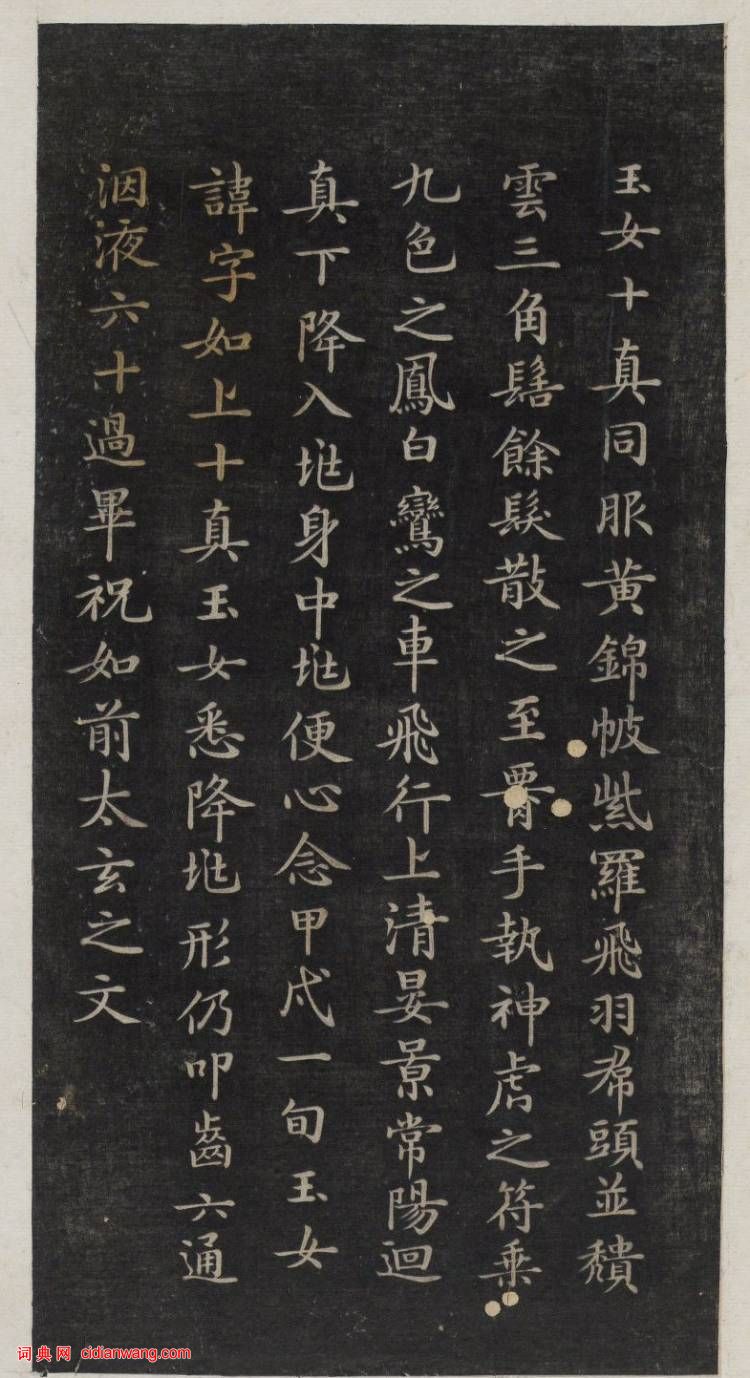 玉女十真同服黃錦帔紫羅飛羽帬頭並穨
雲三角髻餘髮散之至腰手執神虎之符乗
九色之鳳白鸞之車飛行上清晏景常陽迴
真下降入㘴身中㘴便心念甲戌一旬玉女
諱字如上十真玉女悉降㘴形仍叩齒六通
咽液六十過畢祝如前太玄之文
词典网 cidianwang.com